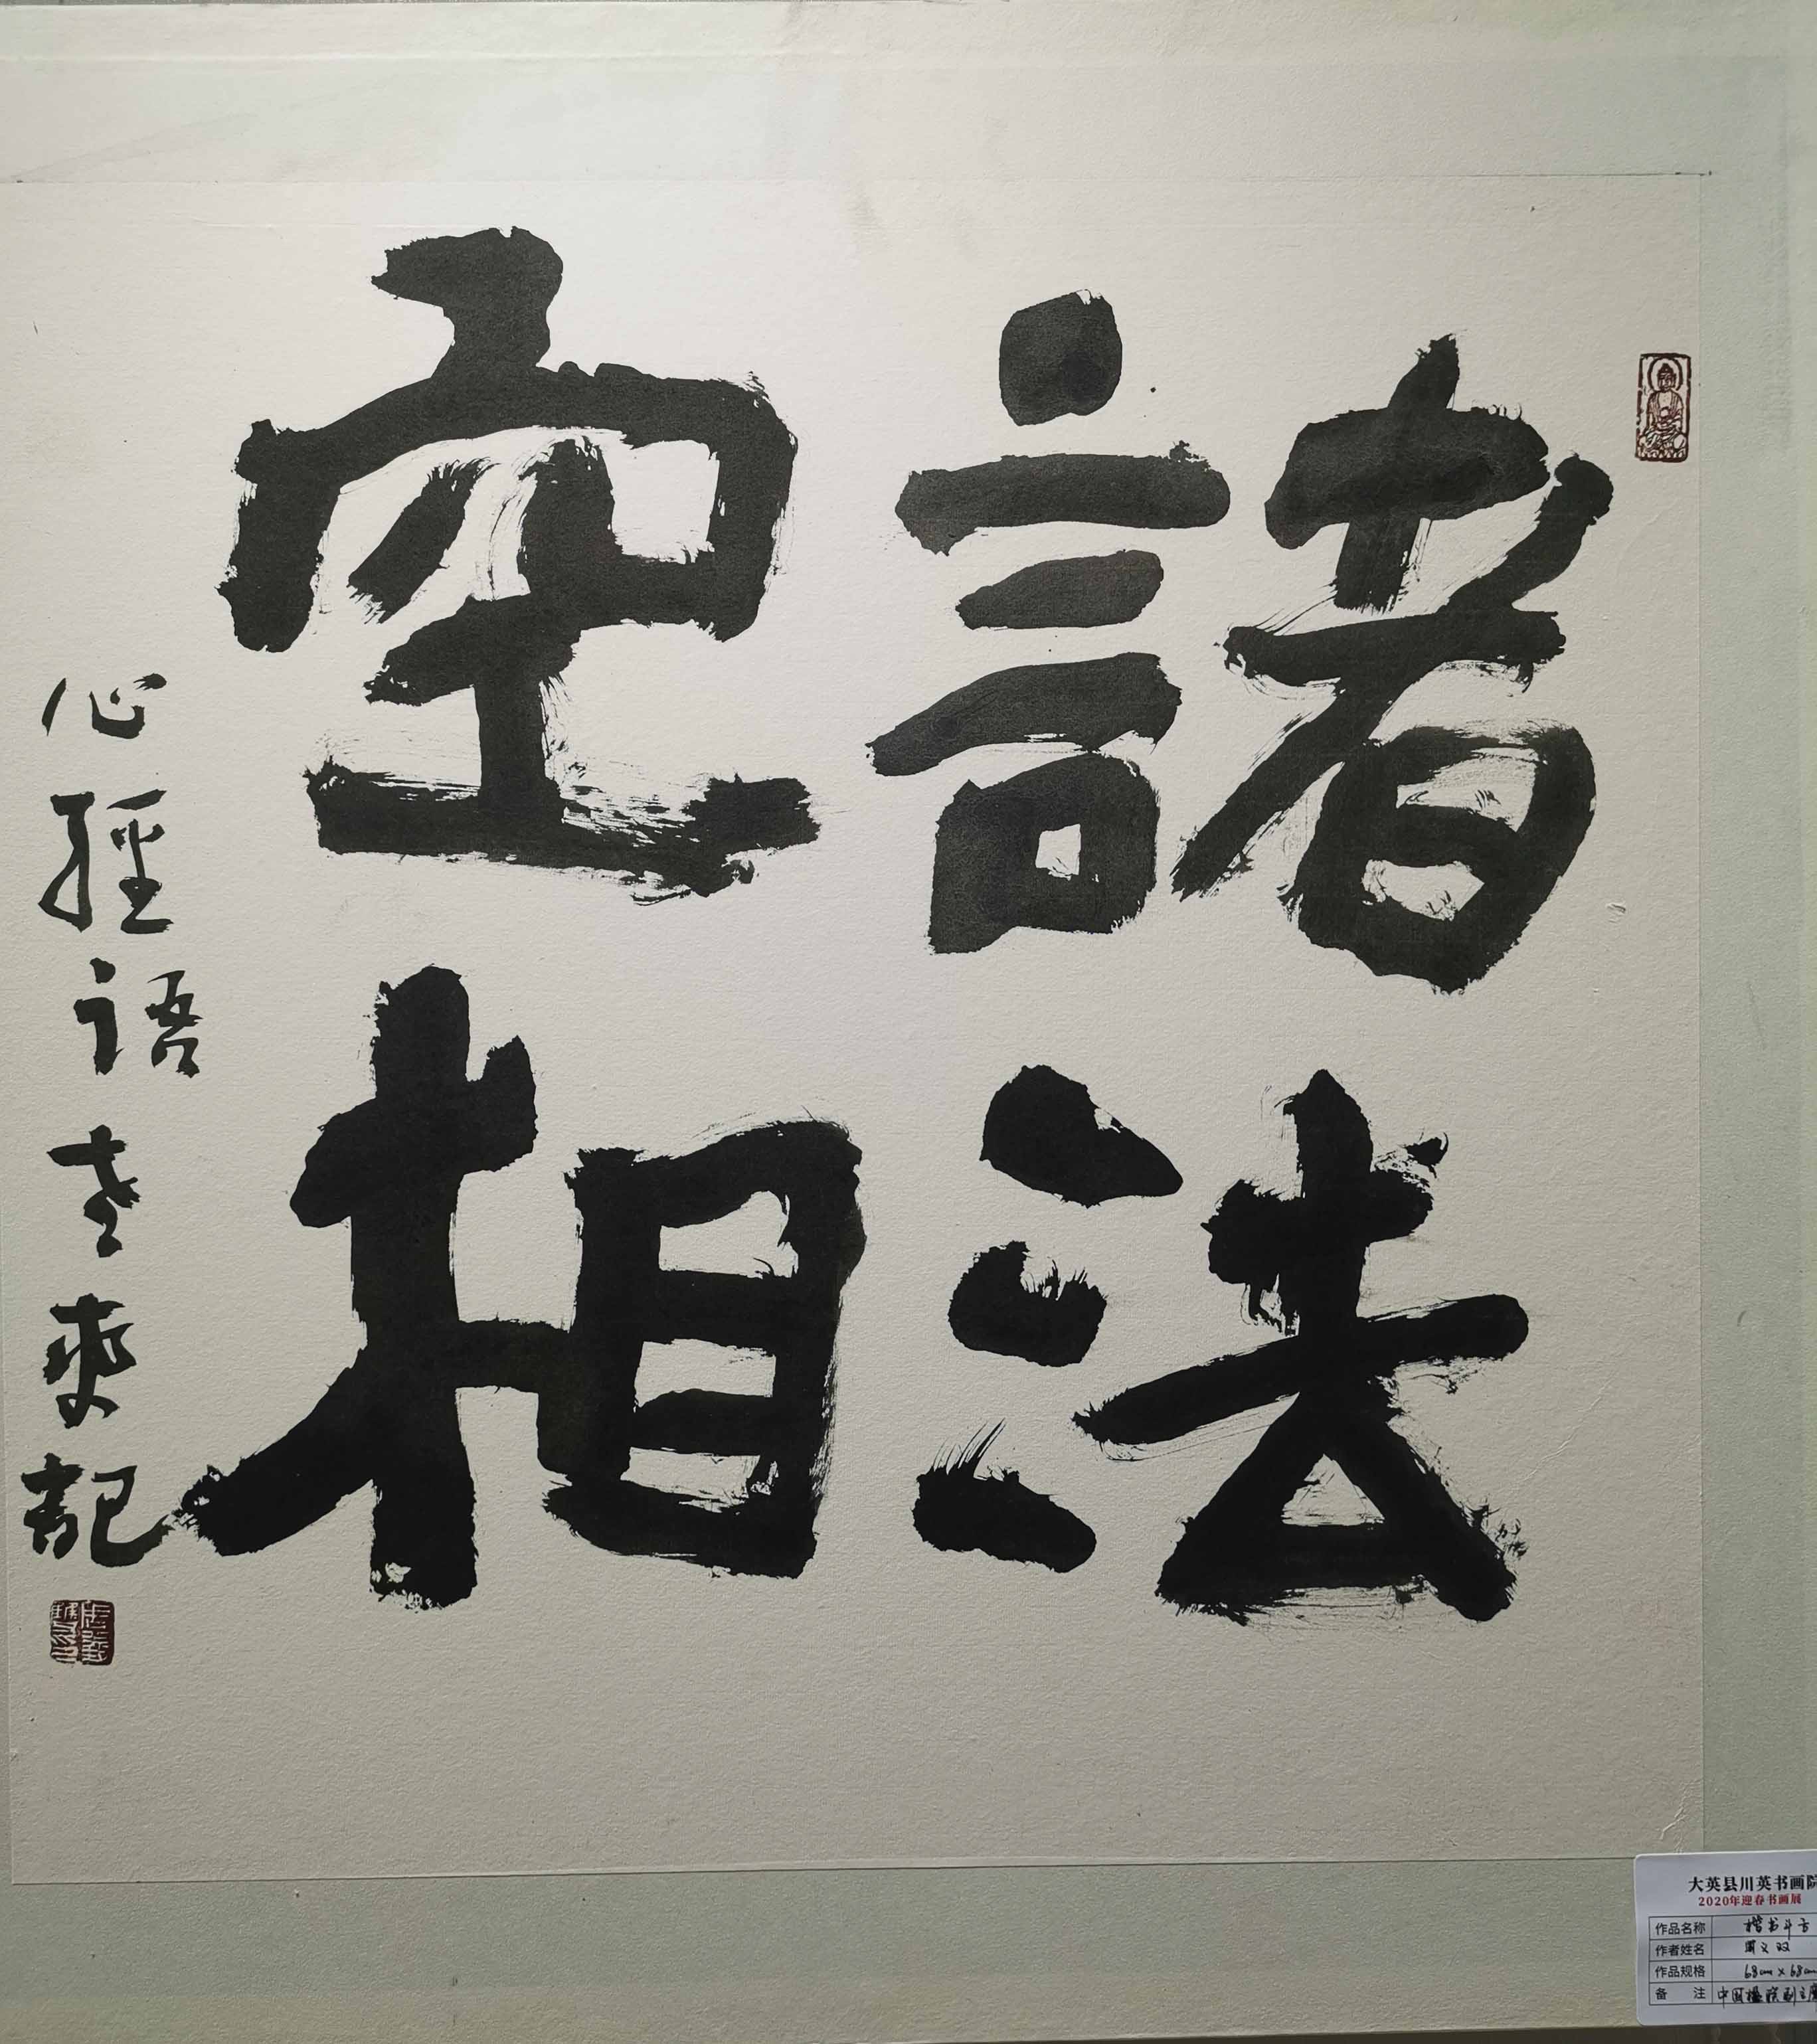 諸法
空相
心經語 老爽記
大英县川英书画院
2020年迎春书画展
作品名称 楷书斗方
作者姓名 周文双
作品规格 68cm×68cm
备注 中国楹联副主席